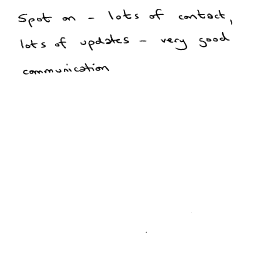 Spot on - lots of contact,
lots of updates - very good
communication